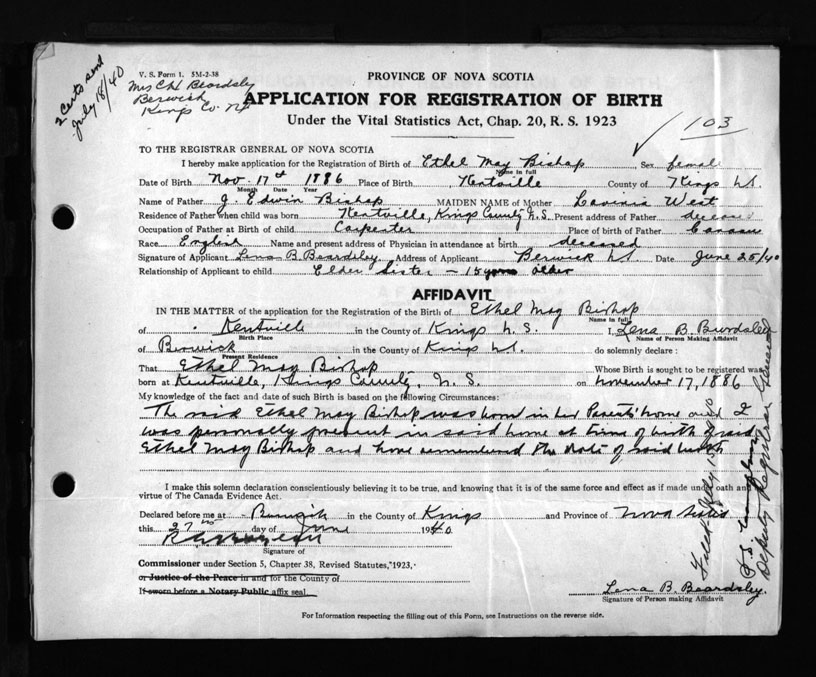 2 Certs send
July 18/40
V. S. Form 1. 5M-2-38
Mrs C H Beardsley
Berwick
Kings Co. NS
PROVINCE OF NOVA SCOTIA
APPLICATION FOR REGISTRATION OF BIRTH
Under the Vital Statistics Act, Chap. 20, R. S. 1923
103
TO THE REGISTRAR GENERAL OF NOVA SCOTIA
I hereby make application for the Registration of Birth of Ethel May Bishop Sex female
Name in full
Date of Birth Nov. 17th 1886 Place of Birth Kentville County of Kings N.S.
Month Date Year
Name of Father J. Edwin Bishop MAIDEN NAME of Mother Lavinia West
Residence of Father when child was born Kentville, Kings County N.S. Present address of Father deceased
Occupation of Father at Birth of child Carpenter Place of birth of Father Canaan
Race English Name and present address of Physician in attendance at birth deceased
Signature of Applicant Lena B. Beardsley Address of Applicant Berwick N.S. Date June 25/40
Relationship of Applicant to child Elder Sister - 15 years older
AFFIDAVIT
IN THE MATTER of the application for the Registration of the Birth of Ethel May Bishop
Name in full
of Kentville in the County of Kings N.S. I, Lena B. Beardsley
Birth Place Name of Person Making Affidavit
of Berwick in the County of Kings N.S. do solemnly declare :
Present Residence
That Ethel May Bishop Whose Birth is sought to be registered was
born at Kentville, Kings County, N.S. on November 17, 1886
My knowledge of the fact and date of such Birth is based on the following Circumstances:
The said Ethel May Bishop was born in her Parents' home and I
was personally present in said home at time of birth of said
Ethel May Bishop and have remembered the date of said birth
I make this solemn declaration conscientiously believing it to be true, and knowing that it is of the same force and effect as if made under oath and
virtue of The Canada Evidence Act.
Declared before me at Berwick in the County of Kings and Province of Nova Scotia
this 27th day of June 1940.
Commissioner under Section 5, Chapter 38, Revised Statutes, 1923,
or Justice of the Peace in and for the County of
If sworn before a Notary Public affix seal
Lena B. Beardsley.
Signature of Person making Affidavit
For Information respecting the filling out of this Form, see Instructions on the reverse side.
Filed July 15 1940
Deputy Registrar General